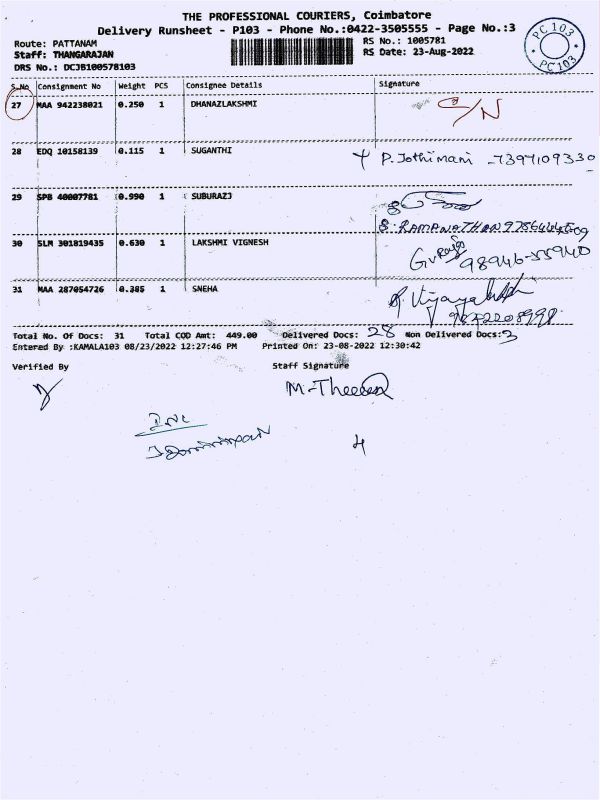 THE PROFESSIONAL COURIERS, Coimbatore
Delivery Runsheet - P103 - Phone No.:0422-3505555 - Page No.:3
Route: PATTANAM
RS No.: 1005781
Staff: THANGARAJAN
RS Date: 23-Aug-2022
DRS No.: DCJB100578103
PC 103
PC 103
S.No Consignment No Weight PCS Consignee Details Signature
27 MAA 942238021 0.250 1 DHANAZLAKSHMI
28 EDQ 10158139 0.115 1 SUGANTHI P. Jothimani - 7397109330
29 SPB 40007781 0.990 1 SUBURAZJ
S. RAMANATHAN
30 SLM 301819435 0.630 1 LAKSHMI VIGNESH
98946-55940
31 MAA 287054726 0.385 1 SNEHA
Total No. Of Docs: 31 Total COD Amt: 449.00 Delivered Docs: 28 Non Delivered Docs: 3
Entered By :KAMALA103 08/23/2022 12:27:46 PM Printed On: 23-08-2022 12:30:42
Verified By Staff Signature
4